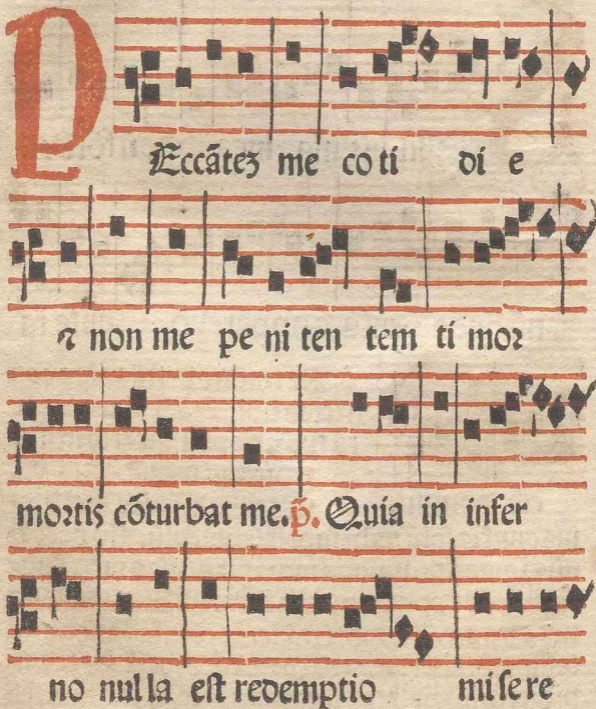 PEccãteʒ me co ti di e
⁊ non me pe ni ten tem ti moꝛ
moꝛtis cõturbat me. p̃. Quia in infer
no nul la est redemptio mi se re